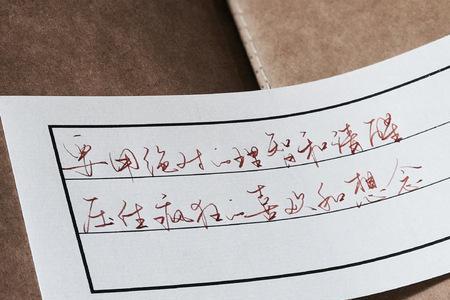 要用绝对的理智和清醒
压住疯狂的喜欢和想念